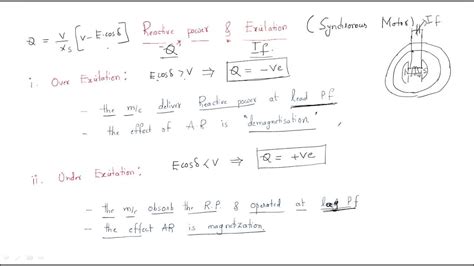 Q = V/Xs [V - E cosδ] Reactive power & Exitation (Synchronous Motor) If
-Q If.
i. Over Exitation: E cosδ > V ⇒ Q = -Ve
- the m/c deliver Reactive power at lead Pf
- the effect of AR is "demagnetisation".
ii. Under Exitation:
E cosδ < V ⇒ Q = +Ve
- the m/c absorb the R.P. & operated at lag Pf
- the effect AR is magnetization